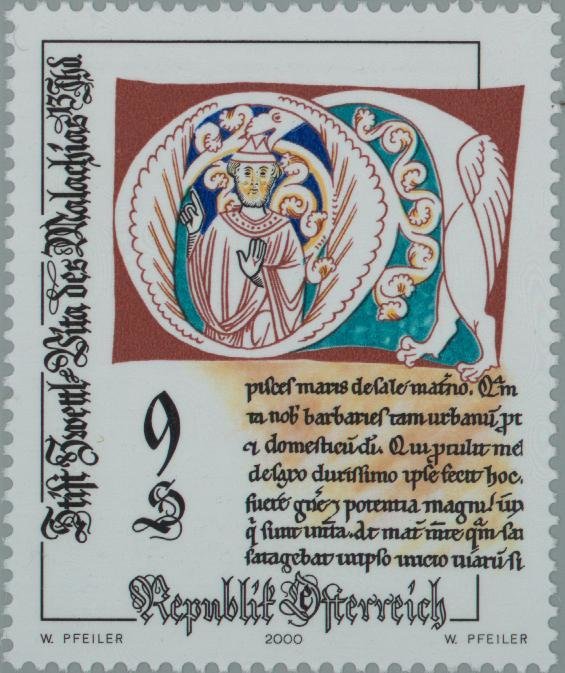 Stift Zwettl-Vita des Malachias 13. Jhd.
pisces maris desale mat̄no. Qm̄
ta nob̄ barbaries tam urbanū pt
⁊ domesticū dī. Qui ptulit mel
desaxo durissimo ipse fecit hoc.
fuere ⁊ potentia magni
q̄ sunt. At mat̄ m̄te qm̄ san
satagebat inipso inicio uiarū si
9
S
Republik Österreich
W. PFEILER 2000 W. PFEILER